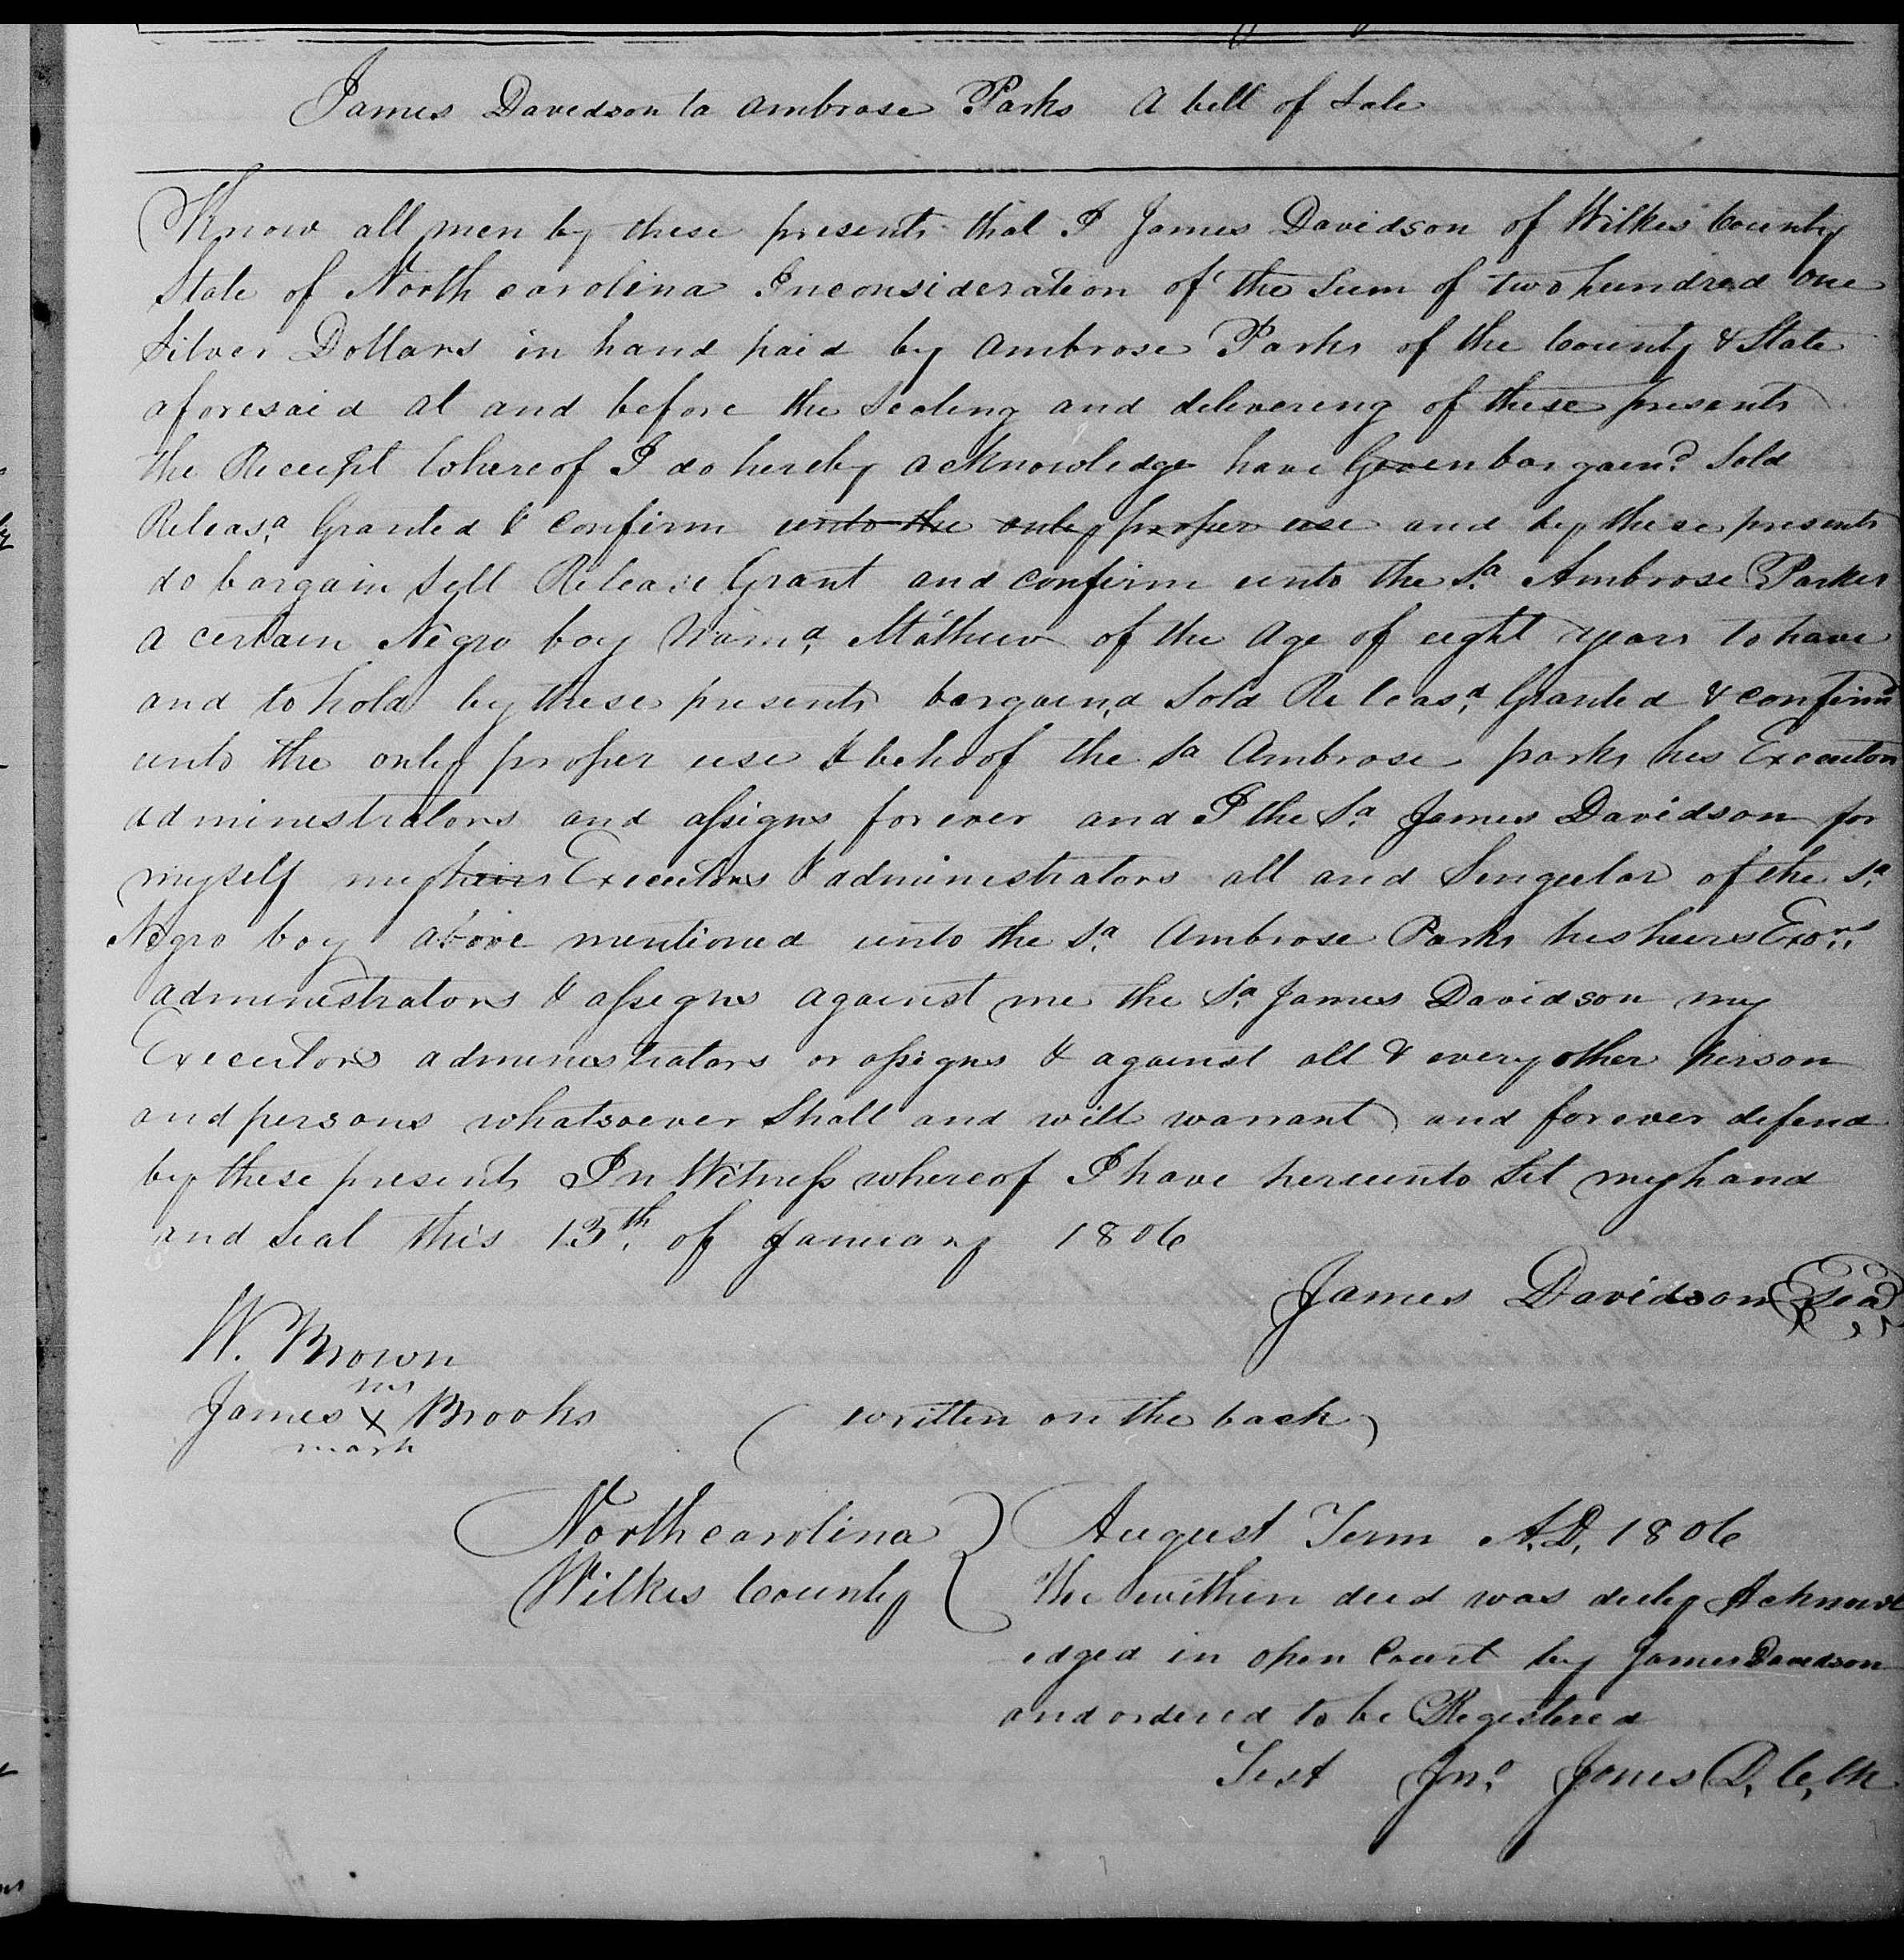 James Davedson to Ambrose Parks A bill of Sale
Know all men by these presents that I James Davidson of Wilkes County
State of North carolina Inconsideration of the Sum of two hundred one
Silver Dollars in hand paid by Ambrose Parks of the County & State
aforesaid at and before the Sealing and delivering of these presents
the Receipt whereof I do hereby acknowledge have Given bargaind Sold
Releasd Granted & Confirm unto the only proper use and by these presents
do bargain Sell Release Grant and confirm unto the Sd Ambrose Parker
a certain Negro boy Namd Mathew of the Age of eight years to have
and to hold by these presents bargained Sold Releasd Granted & confirmd
unto the only proper use & behoof the Sd Ambrose parks his Executors
administrators and assigns forever and I the Sd James Davidson for
myself my heirs Executors & administrators all and Singular of the Sd
Negro boy above mentioned unto the Sd Ambrose Parks his heirs Exors
administrators & assigns against me the Sd James Davidson my
Executors administrators or assigns & against all & every other person
and persons whatsoever Shall and will warrant and forever defend
by these presents In Witness whereof I have hereunto Set my hand
and Seal this 13th of January 1806
James Davidson Sea
W. Brown
his
James x Brooks (written on the back)
mark
North carolina } August Term A.D. 1806
Wilkes County } The within deed was duly Acknowl
edged in open Court by James Davidson
and ordered to be Registered
Test Jno Jones D. C. Ck